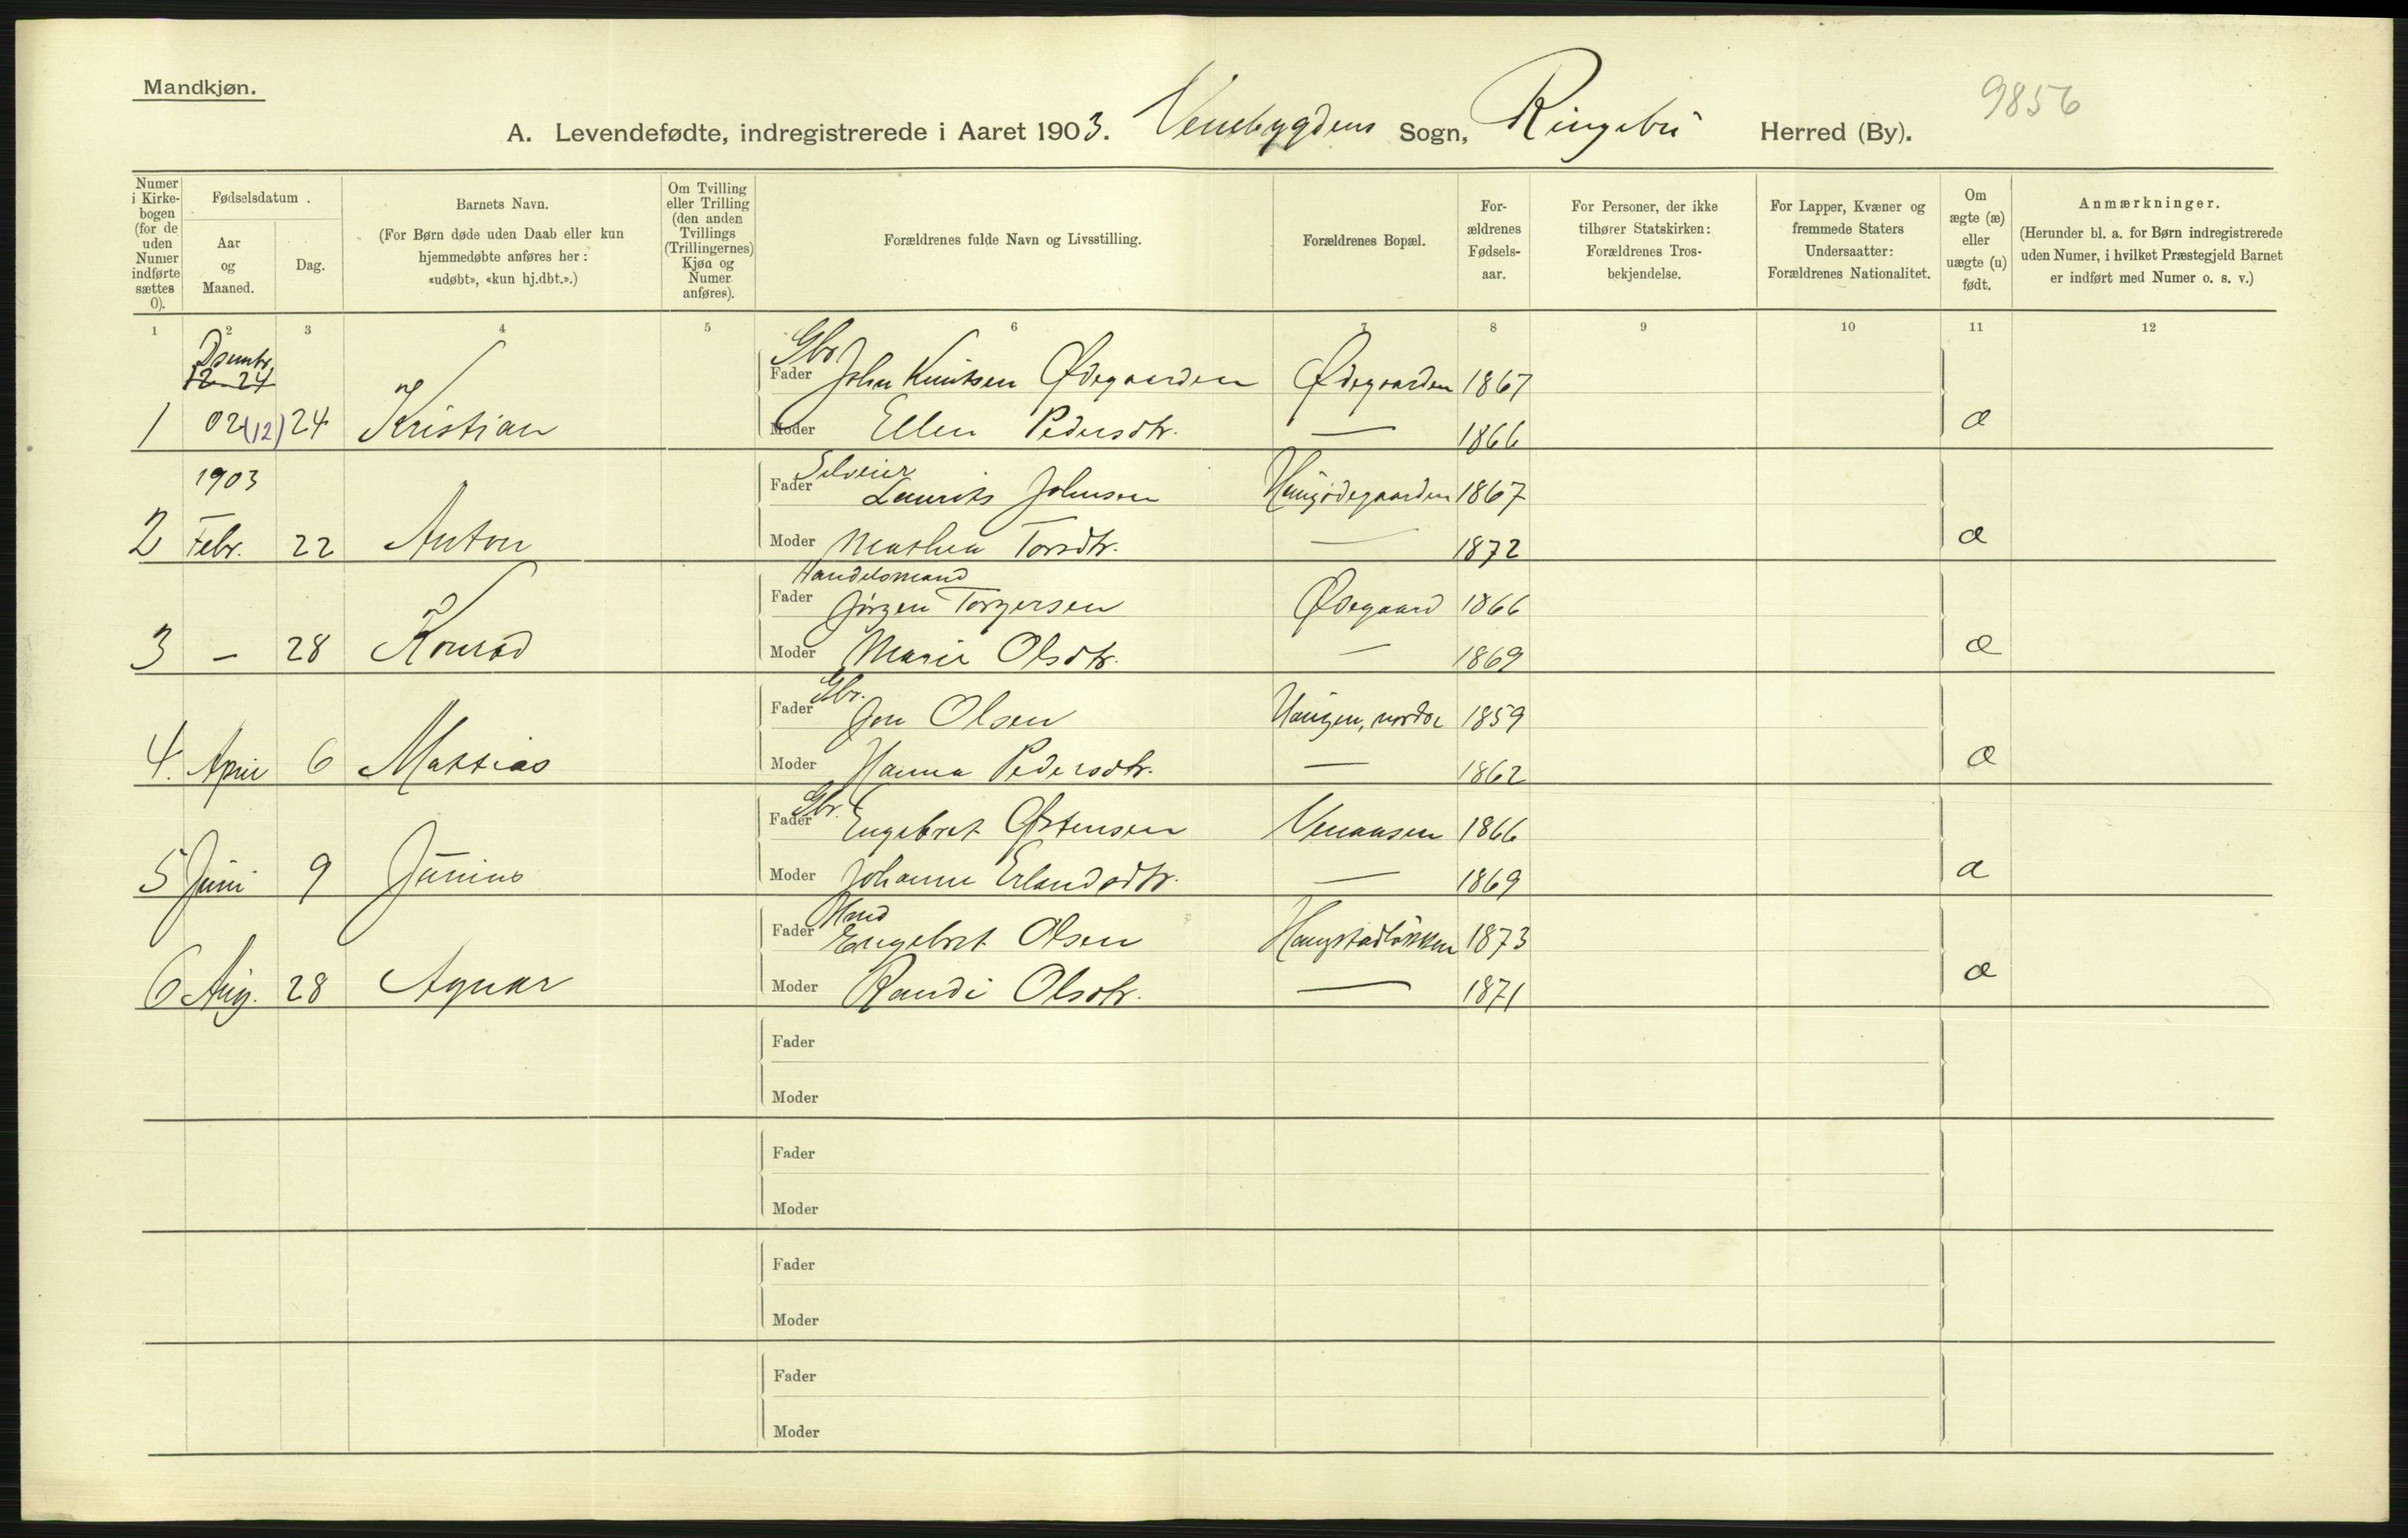 Mandkjøn.
9856
A. Levendefødte, indregistrerede i Aaret 1903. Venebygdens Sogn, Ringebu Herred (By).
Numer i Kirkebogen (for de uden Numer indførte sættes 0).
Fødselsdatum.
Aar og Maaned.
Dag.
Barnets Navn.
(For Børn døde uden Daab eller kun hjemmedøbte anføres her: «udøbt», «kun hj.dbt.».)
Om Tvilling eller Trilling (den anden Tvillings (Trillingernes) Kjøn og Numer anføres).
Forældrenes fulde Navn og Livsstilling.
Forældrenes Bopæl.
Forældrenes Fødselsaar.
For Personer, der ikke tilhører Statskirken: Forældrenes Trosbekjendelse.
For Lapper, Kvæner og fremmede Staters Undersaatter: Forældrenes Nationalitet.
Om ægte (æ) eller uægte (u) født.
Anmærkninger.
(Herunder bl. a. for Børn indregistrerede uden Numer, i hvilket Præstegjeld Barnet er indført med Numer o. s. v.)
1 2 3 4 5 6 7 8 9 10 11 12
12-24
Gbr.
Fader John Knutsen Ødegaarden Ødegaarden 1867
1 02 (12) 24 Kristian Moder Ellen Pedersdtr. — 1866 æ
1903 Fader Selveier Laurits Johnsen Haugødegaarden 1867
2 Febr. 22 Anton Moder Mathea Torsdtr. — 1872 æ
Handelsmand
Fader Jørgen Torgersen Ødegaard 1866
3 — 28 Konrad Moder Marie Olsdtr. — 1869 æ
Fader Gbr. Jon Olsen Haugen, nordre 1859
4. April 6 Mattias Moder Hanna Pedersdtr. — 1862 æ
Fader Gbr. Engebret Østensen Venaasen 1866
5 Juni 9 Junius Moder Johanne Erlandsdtr. — 1869 æ
Fader Engebret Olsen Haugstadløkken 1873
6 Aug. 28 Agnar Moder Randi Olsdtr. — 1871 æ
Fader
Moder
Fader
Moder
Fader
Moder
Fader
Moder